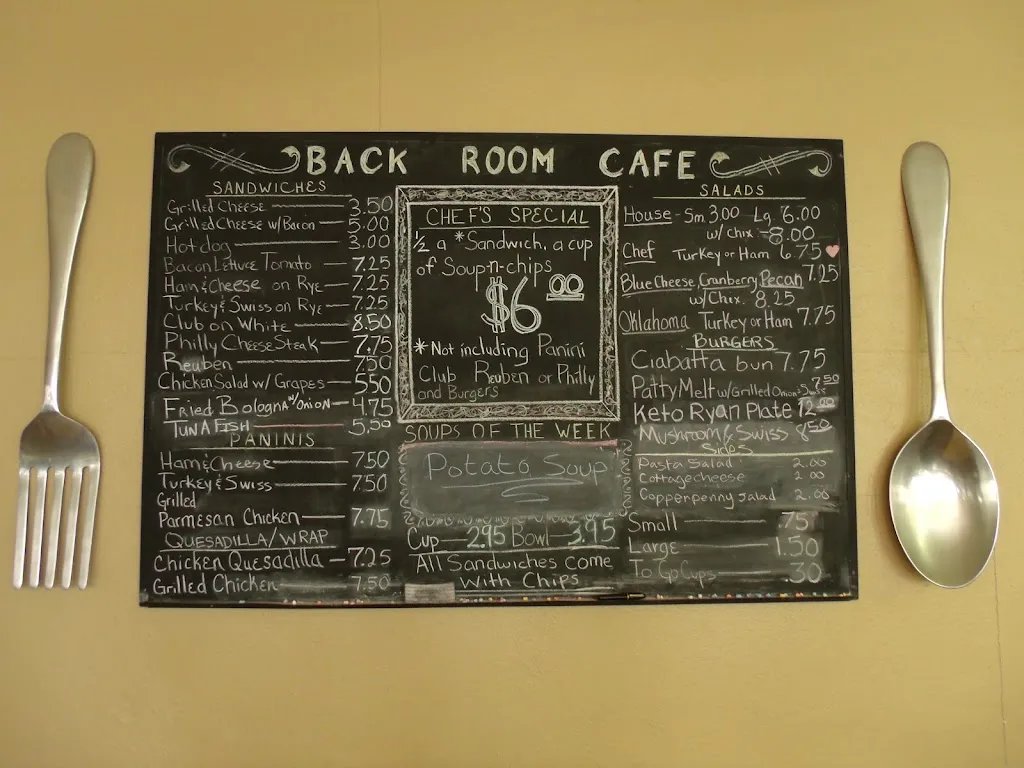 BACK ROOM CAFE
SANDWICHES
Grilled Cheese 3.50
Grilled Cheese w/Bacon 5.00
Hot dog 3.00
Bacon Lettuce Tomato 7.25
Ham & Cheese on Rye 7.25
Turkey & Swiss on Rye 7.25
Club on White 8.50
Philly Cheese Steak 7.75
Reuben 7.50
Chicken Salad w/ Grapes 5.50
Fried Bologna w/ Onion 4.75
Tuna Fish 5.50
PANINIS
Ham & Cheese 7.50
Turkey & Swiss 7.50
Grilled
Parmesan Chicken 7.75
QUESADILLA/WRAP
Chicken Quesadilla 7.25
Grilled Chicken 7.50
CHEF'S SPECIAL
1/2 a *Sandwich, a cup
of Soup-n-chips
$6.00
*Not including Panini
Club Reuben or Philly
and Burgers
SOUPS OF THE WEEK
Potato Soup
Cup 2.95 Bowl 3.95
All Sandwiches come
With Chips
SALADS
House - Sm 3.00 Lg 6.00
w/ chix - 8.00
Chef Turkey or Ham 6.75
Blue Cheese, Cranberry Pecan 7.25
w/Chix. 8.25
Oklahoma Turkey or Ham 7.75
BURGERS
Ciabatta bun 7.75
Patty Melt w/Grilled Onion & Swiss 7.50
Keto Ryan Plate 12.00
Mushroom & Swiss 8.50
Sides
Pasta Salad 2.00
Cottage cheese 2.00
Copperpenny Salad 2.00
Small .75
Large 1.50
To Go Cups .30